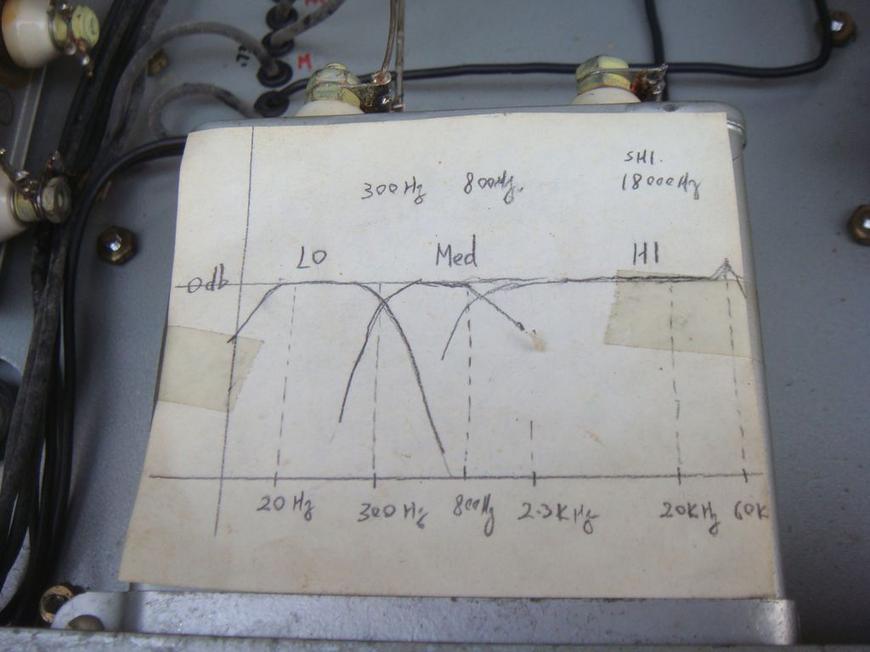 M
SHI.
300Hz 800Hz. 18000Hz
LO Med HI
0db
20Hz 300Hz 800Hz 2.3KHz 20KHz 60K